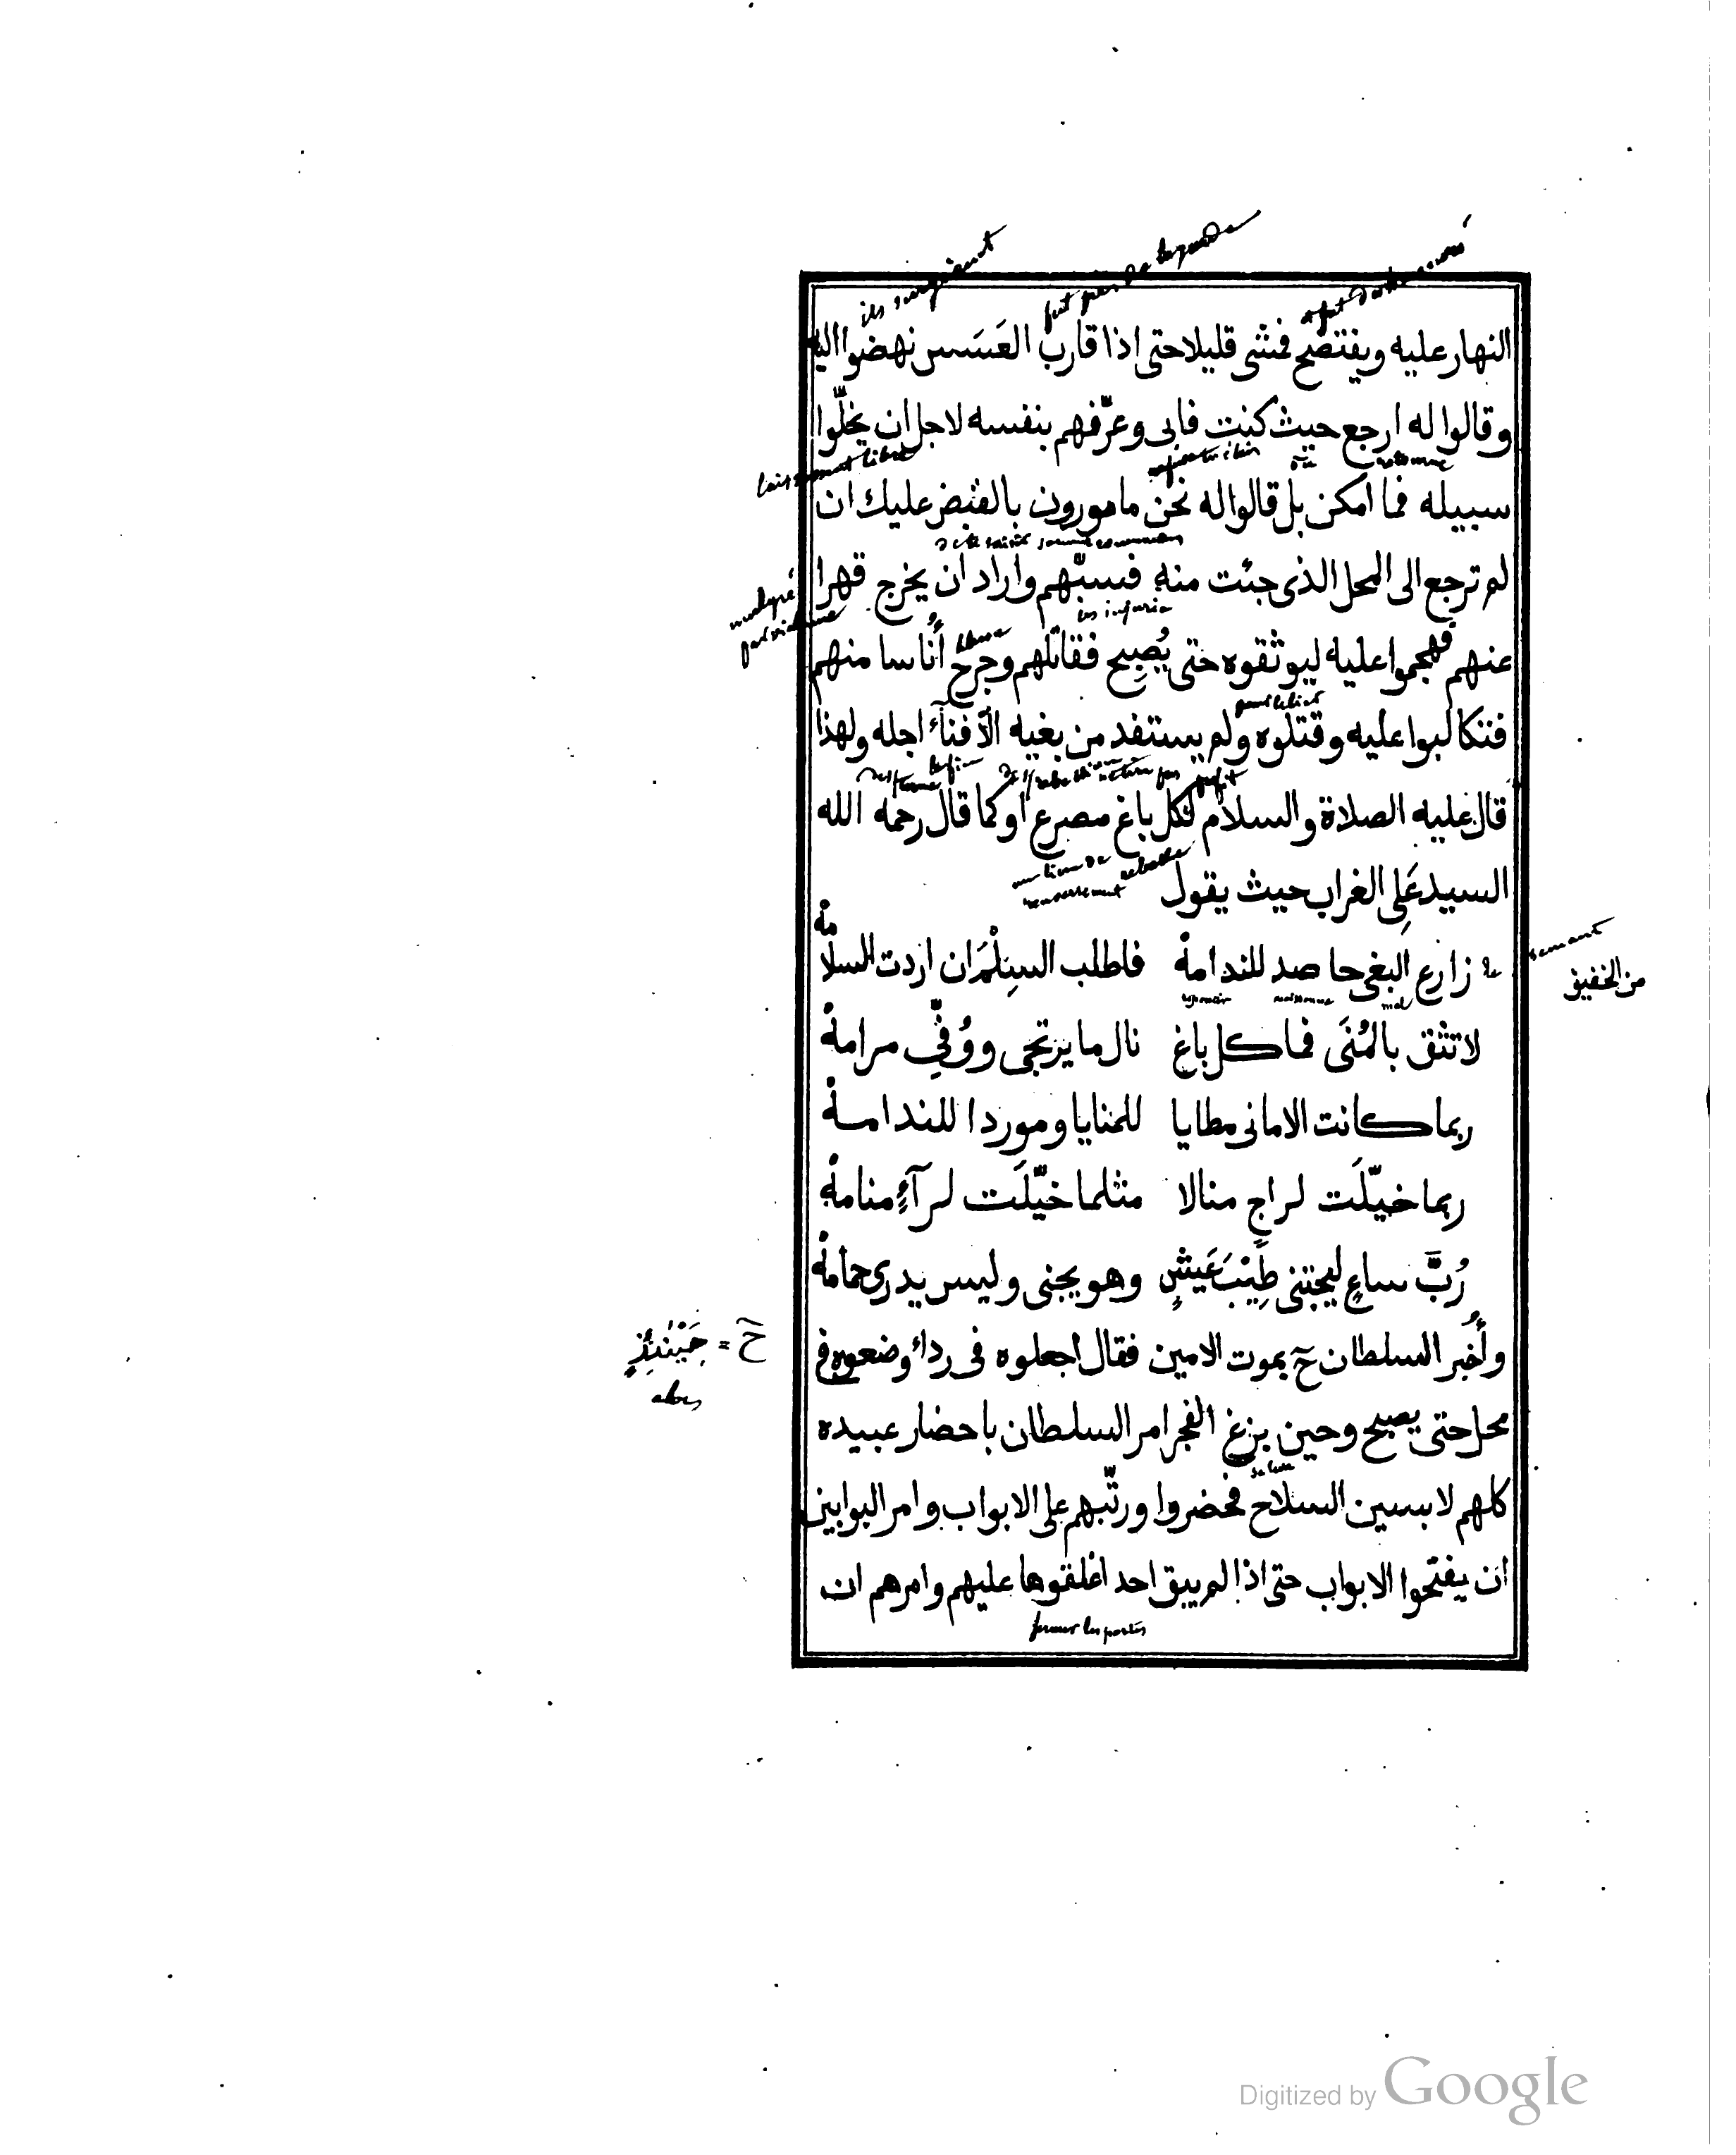 النهار عليه ويفتضح فمشى قليلا حتى اذا قارب العَسَس نهضوا اليه
وقالوا له ارجع حيث كنت فابى وعرّفهم بنفسه لاجل ان يخلّوا
سبيله فما امكن بل قالوا له نحن مامورون بالقبض عليك ان
لم ترجع الى المحل الذى جئت منه فسبّهم واراد ان يخرج قهرا
عنهم فهجموا عليه ليوثقوه حتى يُصبِح فقاتلهم وجرح أُناسا منهم
فتكالبوا عليه وقتلوه ولم يستفد من بغيه الّا فنآء اجله ولهذا
قال عليه الصلاة والسلام لكل باغ مصرع اوكما قال رحمه الله
السيد عَلِى الغراب حيث يقول
زارع البغى حاصد للندامهْ فاطلب السِلْمَ ان اردت السلامهْ
من الخفيف
semant
لا تثق بالمُنَى فما كل باغ نال ما يرتجى ووُفِّى مرامهْ
ربما كانت الامانى مطايا للمنايا وموردا للندامهْ
ربما خيّلَت لراجٍ منالا مثلما خيّلَت لرآءٍ منامهْ
رُبَّ ساعٍ ليجتنى طِيْبَ عَيشٍ وهو يجنى وليس يدرى حمامهْ
وأُخبر السلطان حٓ بموت الامين فقال اجعلوه فى رداء وضعوه فى
حٓ = حِيْنَئِذٍ
alors
محل حتى يصبح وحين بزغ الفجر امر السلطان باحضار عبيده
كلهم لابسين السلاح فحضروا ورتّبهم على الابواب وامر البوابين
ان يفتحوا الابواب حتى اذا لم يبق احد اغلقوها عليهم وامرهم ان
fermer les portes
Digitized by Google